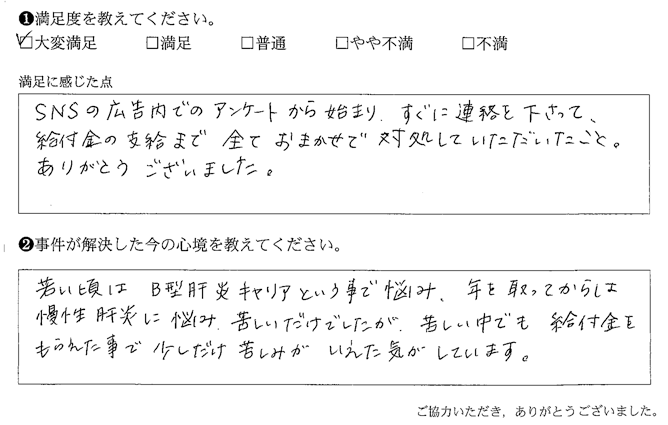 ❶満足度を教えてください。
☑大変満足 □満足 □普通 □やや不満 □不満
満足に感じた点
SNSの広告内でのアンケートから始まり、すぐに連絡を下さって、
給付金の支給まで全ておまかせで対処していただいたこと。
ありがとうございました。
❷事件が解決した今の心境を教えてください。
若い頃はB型肝炎キャリアという事で悩み、年を取ってからは
慢性肝炎に悩み、苦しいだけでしたが、苦しい中でも給付金を
もらえた事で少しだけ苦しみがいえた気がしています。
ご協力いただき，ありがとうございました。